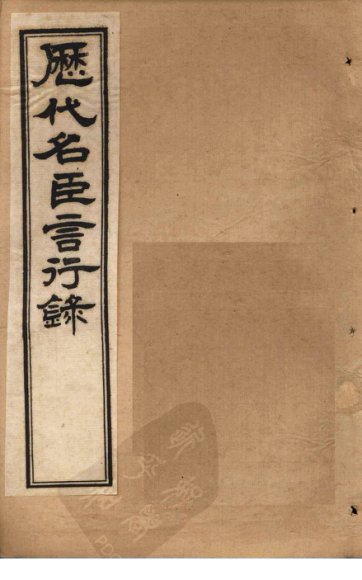 歷代名臣言行錄